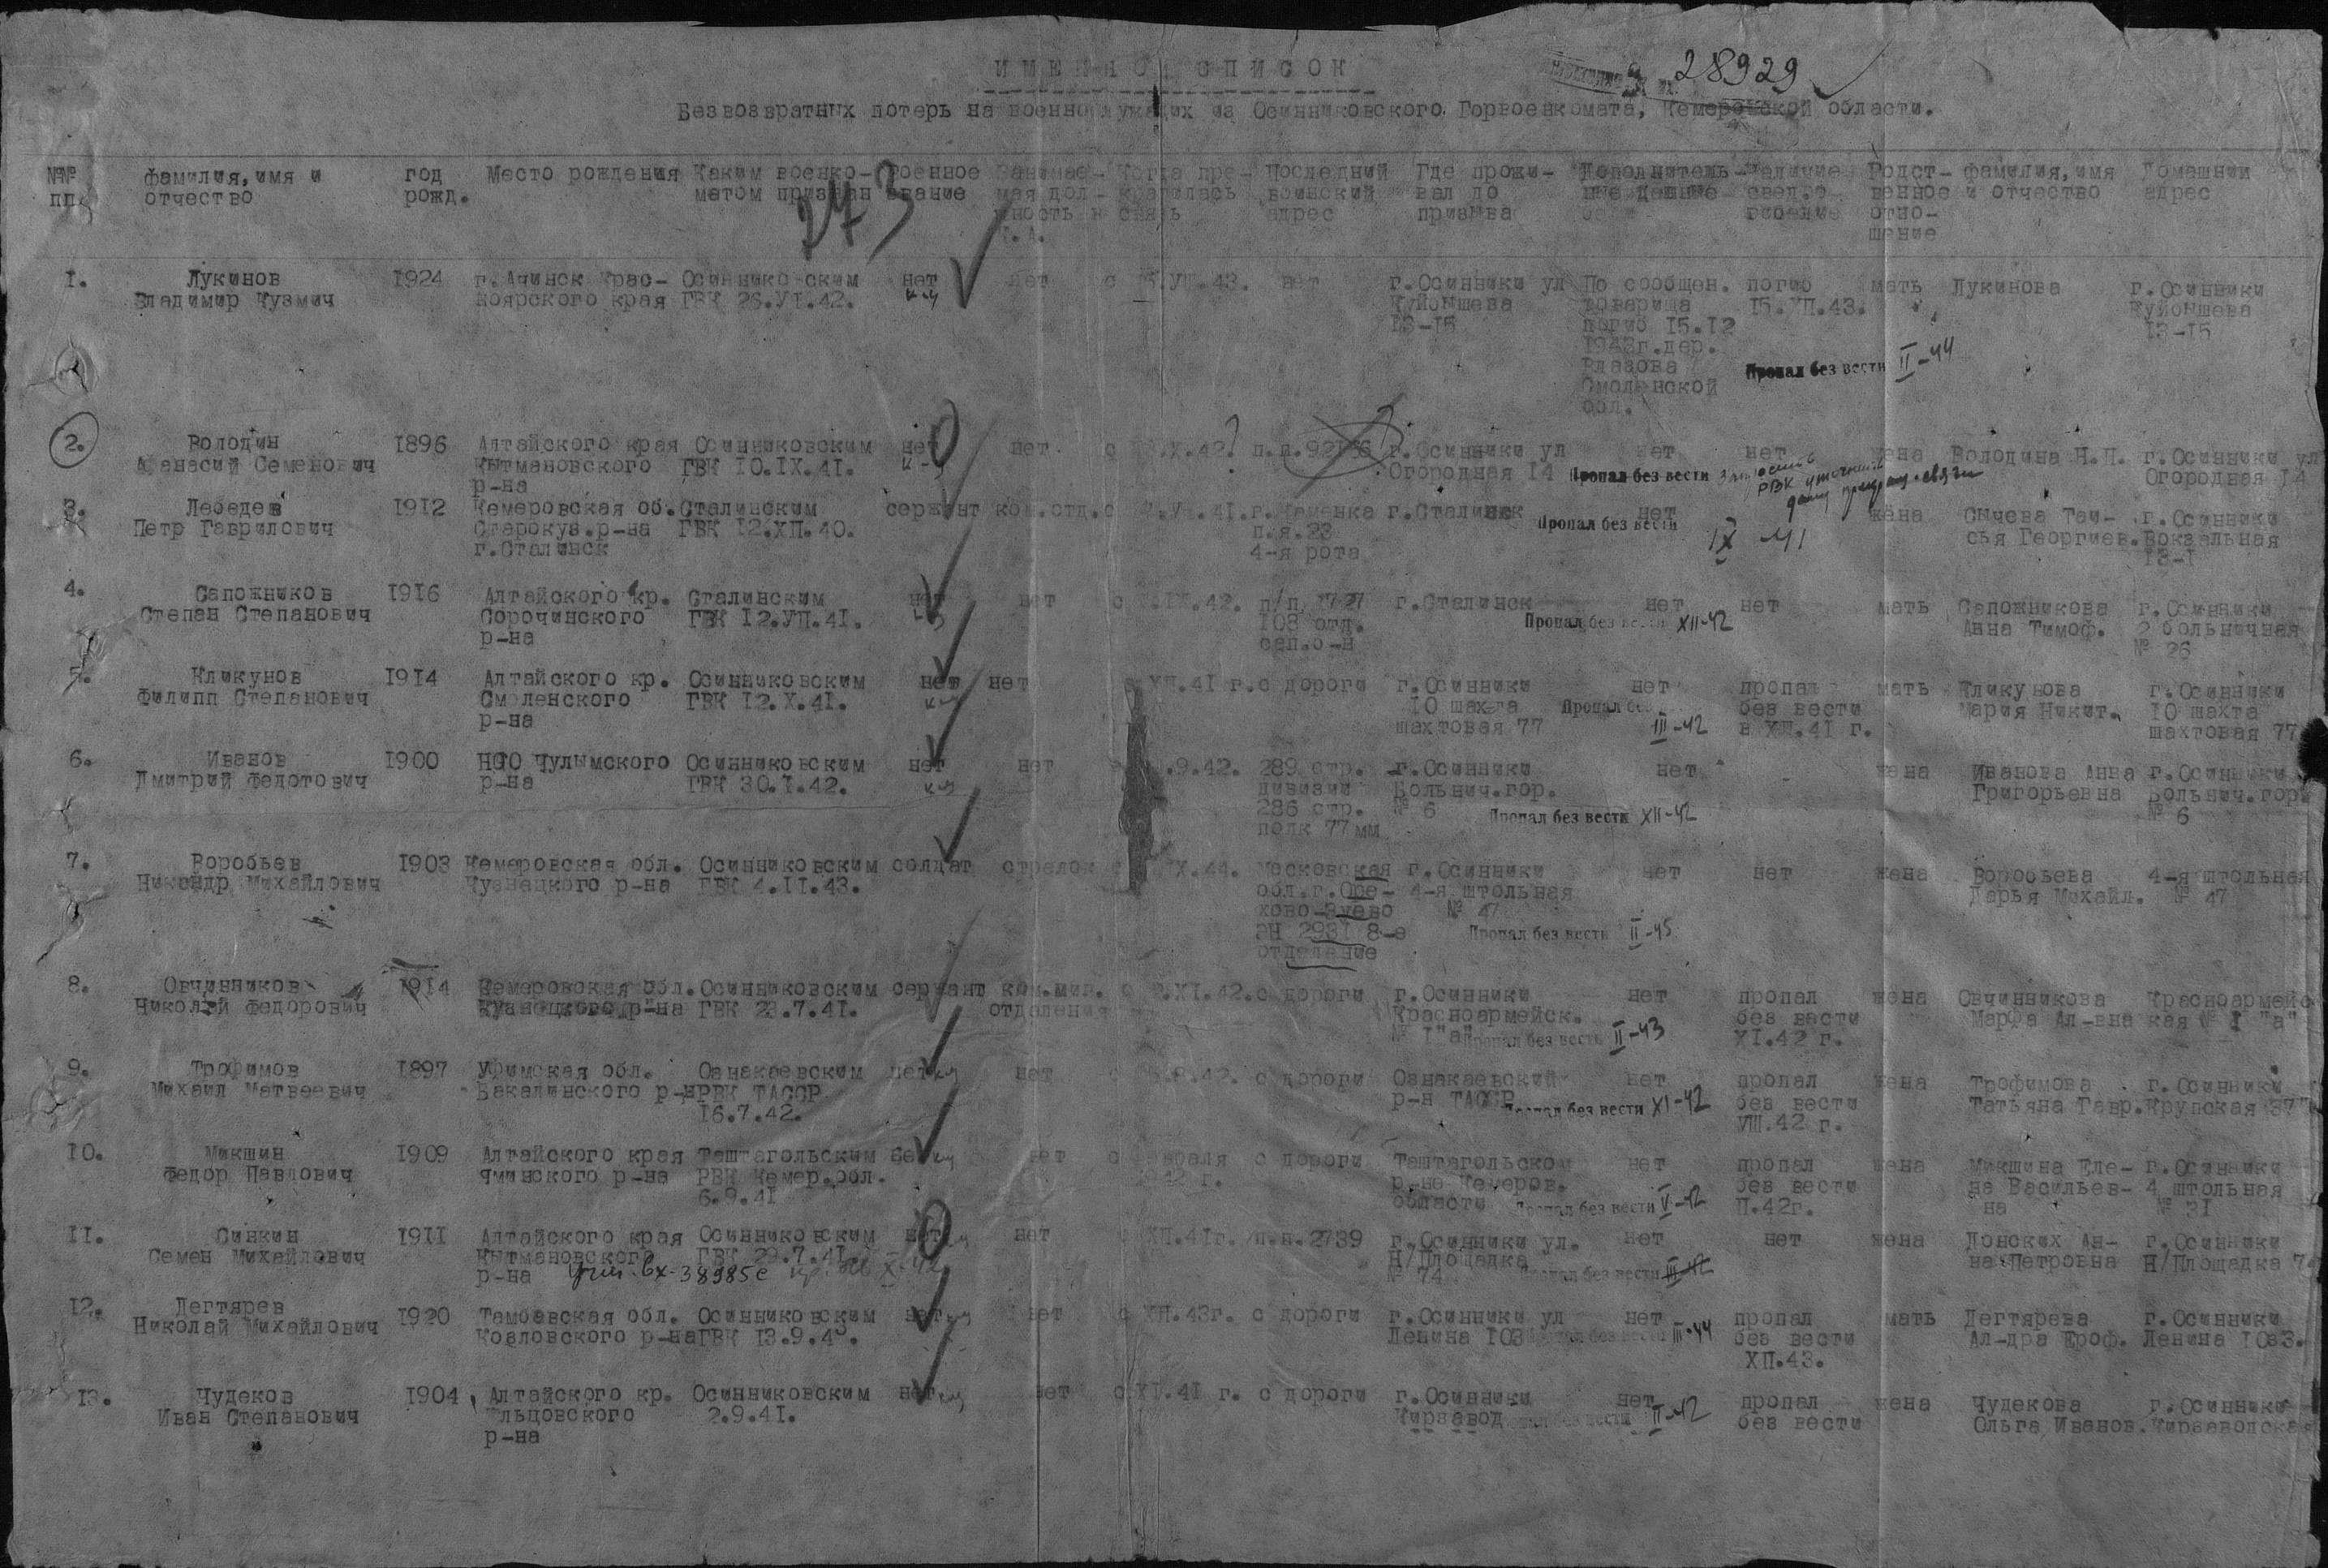 ИМЕННОЙ СПИСОК
28929
Безвозвратных потерь на военнослужащих из Осинниковского Горвоенкомата, Кемеровской области.
№№ пп фамилия, имя и отчество год рожд. Место рождения Каким военко-матом призван Военное звание Занимае-мая дол-жность в К.А. Когда пре-кратилась связь Последний воинский адрес Где прожи-вал до призыва Дополнитель-ные данные Наличие Родст-венное отно-шение фамилия, имя и отчество Домашний адрес
243
1. Лукинов 1924 г.Ачинск Крас- Осинниковским нет нет с г.Осинники ул По сообщен. погиб мать Лукинова г.Осинники
Владимир Кузмич ноярского края ГВК 26.VI.42. Куйбышева товарища 15.ХП.43. Куйбышева
13-15 погиб 15.12 13-15
1943г.дер.
Глазова Пропал без вести II-44
Смоленской
обл.
2. Володин 1896 Алтайского края Осинниковским нет нет с Х.42? п.п. г.Осинники ул нет нет жена Володина Н.Н. г.Осинники ул
Афанасий Семенович Кытмановского ГВК 10.IX.41. Огородная 14 Пропал без вести Огородная 14
р-на РВК уточнить
дату прекращ. связи
3. Лебедев 1912 Кемеровская об. Сталинским сержант ком.отд. г.Каменка г.Сталинск нет жена Сычева Таи- г.Осинники
Петр Гаврилович Старокуз.р-на ГВК 12.ХП.40. п.я.23 Пропал без вести IX-41 сья Георгиев. Вокзальная
г.Сталинск 4-я рота 13-1
4. Сапожников 1916 Алтайского кр. Сталинским нет нет с IX.42. п/п 1727 г.Сталинск нет нет мать Сапожникова г.Осинники
Степан Степанович Сорочинского ГВК 12.УП.41. 108 отд. Пропал без вести XII-42 Анна Тимоф. 2 больничная
р-на сап.о-н № 26
5. Кликунов 1914 Алтайского кр. Осинниковским нет нет с ХП.41 г. с дороги г.Осинники нет пропал мать Кликунова г.Осинники
Филипп Степанович Смоленского ГВК 12.Х.41. 10 шахта Пропал без вести Мария Никит. 10 шахта
р-на шахтовая 77 III-42 в ХП.41 г. шахтовая 77
6. Иванов 1900 НСО Чулымского Осинниковским нет нет .9.42. 289 стр. г.Осинники нет - жена Иванова Анна г.Осинники
Дмитрий Федотович р-на ГВК 30.I.42. дивизии Больнич.гор. Григорьевна Больнич.гор.
286 стр. № 6 Пропал без вести XII-42 № 6
полк 77 мм
7. Воробьев 1903 Кемеровская обл. Осинниковским солдат стрелок с Х.44. Московская г.Осинники нет нет жена Воробьева 4-я штольная
Никандр Михайлович Кузнецкого р-на ГВК 4.II.43. обл.г.Оре- 4-я штольная Дарья Михайл. № 47
хово-Зуево № 47
ЭН 2931 8-е Пропал без вести II-45
отделение
8. Овчинников 1914 Кемеровская обл. Осинниковским сержант ком.мин. с .XI.42. с дороги г.Осинники нет пропал жена Овчинникова Красноармейс
Николай Федорович Кузнецкого р-на ГВК 23.7.41. отделения Красноармейск. без вести Марфа Ал-вна кая № I "а"
№ I "а" Пропал без вести II-43 XI.42 г.
9. Трофимов 1897 Уфимская обл. Ознакаевским нет нет с .8.42. с дороги Ознакаевский нет пропал жена Трофимова г.Осинники
Михаил Матвеевич Бакалинского р-н РВК ТАССР р-н ТАССР Пропал без вести XI-42 без вести Татьяна Гавр. Крупская 37
16.7.42. УШ.42 г.
10. Микшин 1909 Алтайского края Таштагольским нет нет с февраля с дороги Таштагольском нет пропал жена Микшина Еле- г.Осинники
Федор Павлович Яминского р-на РВК Кемер.обл. 42 г. р-не Кемеров. без вести на Васильев- 4 штольная
6.9.41 области Пропал без вести V-42 П.42г. на № 31
11. Синкин 1911 Алтайского края Осинниковским нет нет с ХП.41г. п.п.2739 г.Осинники ул. нет нет жена Донских Ан- г.Осинники
Семен Михайлович Кытмановского ГВК 29.7.41 Н/Площадка на Петровна Н/Площадка 7
р-на вх-38985с № 74 Пропал без вести III-42
12. Дегтярев 1920 Тамбовская обл. Осинниковским нет нет с ХП.43г. с дороги г.Осинники ул нет пропал мать Дегтярева г.Осинники
Николай Михайлович Козловского р-на ГВК 13.9.43. Ленина 103 III-44 без вести Ал-дра Ероф. Ленина 103.
ХП.43.
13. Чудеков 1904 Алтайского кр. Осинниковским нет нет с XI.41 г. с дороги г.Осинники нет пропал жена Чудекова г.Осинники
Иван Степанович Ельцовского 2.9.41. Кирзавод II-42 без вести Ольга Иванов. Кирзаводская
р-на